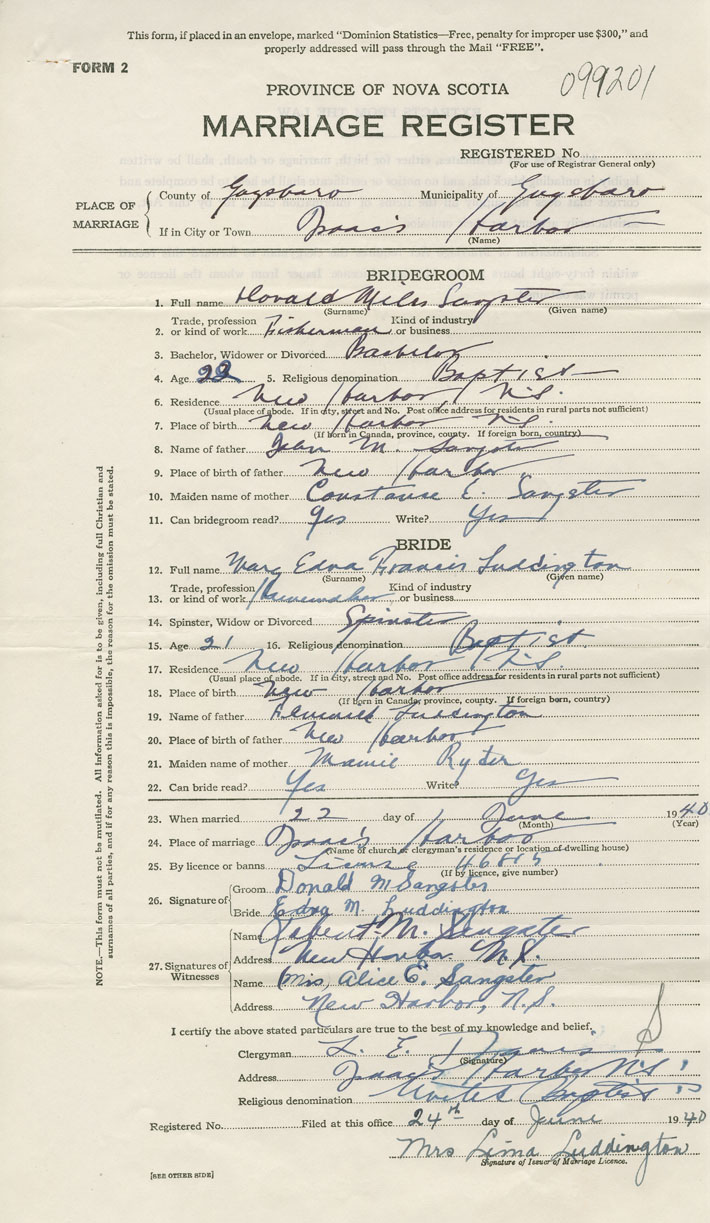 This form, if placed in an envelope, marked "Dominion Statistics—Free, penalty for improper use $300," and
properly addressed will pass through the Mail "FREE".
FORM 2
099201
PROVINCE OF NOVA SCOTIA
MARRIAGE REGISTER
REGISTERED No.
(For use of Registrar General only)
PLACE OF MARRIAGE
County of Guysboro Municipality of Guysboro
If in City or Town Isaac's Harbor
(Name)
BRIDEGROOM
1. Full name Donald Miles Sangster
(Surname) (Given name)
Trade, profession Kind of industry
2. or kind of work Fisherman or business
3. Bachelor, Widower or Divorced Bachelor
4. Age 22 5. Religious denomination Baptist
6. Residence New Harbor N.S.
(Usual place of abode. If in city, street and No. Post office address for residents in rural parts not sufficient)
7. Place of birth New Harbor N.S.
(If born in Canada, province, county. If foreign born, country)
8. Name of father John M. Sangster
9. Place of birth of father New Harbor
10. Maiden name of mother Constanse E. Sangster
11. Can bridegroom read? Yes Write? Yes
BRIDE
12. Full name Mary Edna Francis Luddington
(Surname) (Given name)
Trade, profession Kind of industry
13. or kind of work or business
14. Spinster, Widow or Divorced Spinster
15. Age 21 16. Religious denomination Baptist
17. Residence New Harbor N.S.
(Usual place of abode. If in city, street and No. Post office address for residents in rural parts not sufficient)
18. Place of birth New Harbor
(If born in Canada, province, county. If foreign born, country)
19. Name of father Luddington
20. Place of birth of father New Harbor
21. Maiden name of mother Mamie Ryder
22. Can bride read? Yes Write? Yes
23. When married 22 day of June 1940
(Month) (Year)
24. Place of marriage Isaac's Harbor
(Name of church or clergyman's residence or location of dwelling house)
25. By licence or banns License
(If by licence, give number)
26. Signature of
Groom Donald M Sangster
Bride Edna M. Luddington
27. Signatures of Witnesses
Name Robert M. Sangster
Address New Harbor N.S.
Name Mrs. Alice E. Sangster
Address New Harbor, N.S.
I certify the above stated particulars are true to the best of my knowledge and belief.
Clergyman L. E.
(Signature)
Address Isaac's Harbor N.S.
Religious denomination United Baptist
Registered No. Filed at this office 24th day of June 1940
Mrs Lima Luddington
Signature of Issuer of Marriage Licence.
[SEE OTHER SIDE]
NOTE.—This form must not be mutilated. All information asked for is to be given, including full Christian and
surnames of all parties, and if for any reason this is impossible, the reason for the omission must be stated.